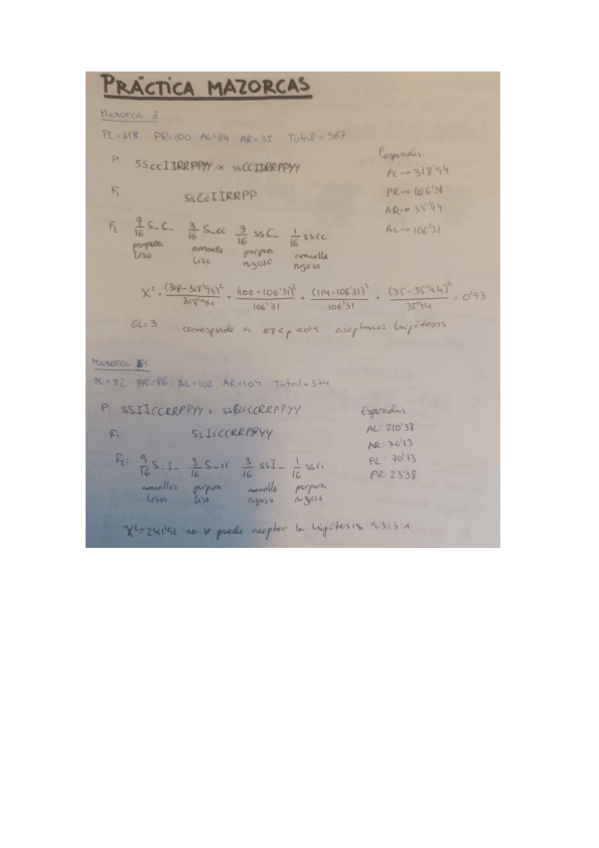 PRÁCTICA MAZORCAS
Mazorca 3
PL=318 PR=100 AL=114 AR=35 Total=567
P SSccIIRRPPYY × ssCCIIRRPPYY
Esperados:
PL→318'94
PR→106'31
AR→35'44
AL→106'31
F₁ SsCcIIRRPP
F₂ 9/16 S_C_ 3/16 S_cc 3/16 ssC_ 1/16 sscc
purpura liso amarillo liso purpura rugoso amarillo rugoso
X² = (318-318'94)²/318'94 + (100-106'31)²/106'31 + (114-106'31)²/106'31 + (35-35'44)²/35'44 = 0'93
GL=3 corresponde a 0'8<p<0'9. aceptamos hipótesis
Mazorca 54.
PL=82 PR=86 AL=102 AR=104 Total=374
P SSIICCRRPPYY × ssiiCCRRPPYY
Esperados
AL: 210'38
AR: 70'13
PL: 70'13
PR: 23'38
F₁ SsIiCCRRPPYY
F₂: 9/16 S_I_ 3/16 S_ii 3/16 ssI_ 1/16 ssii
amarillos lisos purpura liso amarillo rugoso purpura rugoso
X²=241'92 no se puede aceptar la hipótesis 9:3:3:1